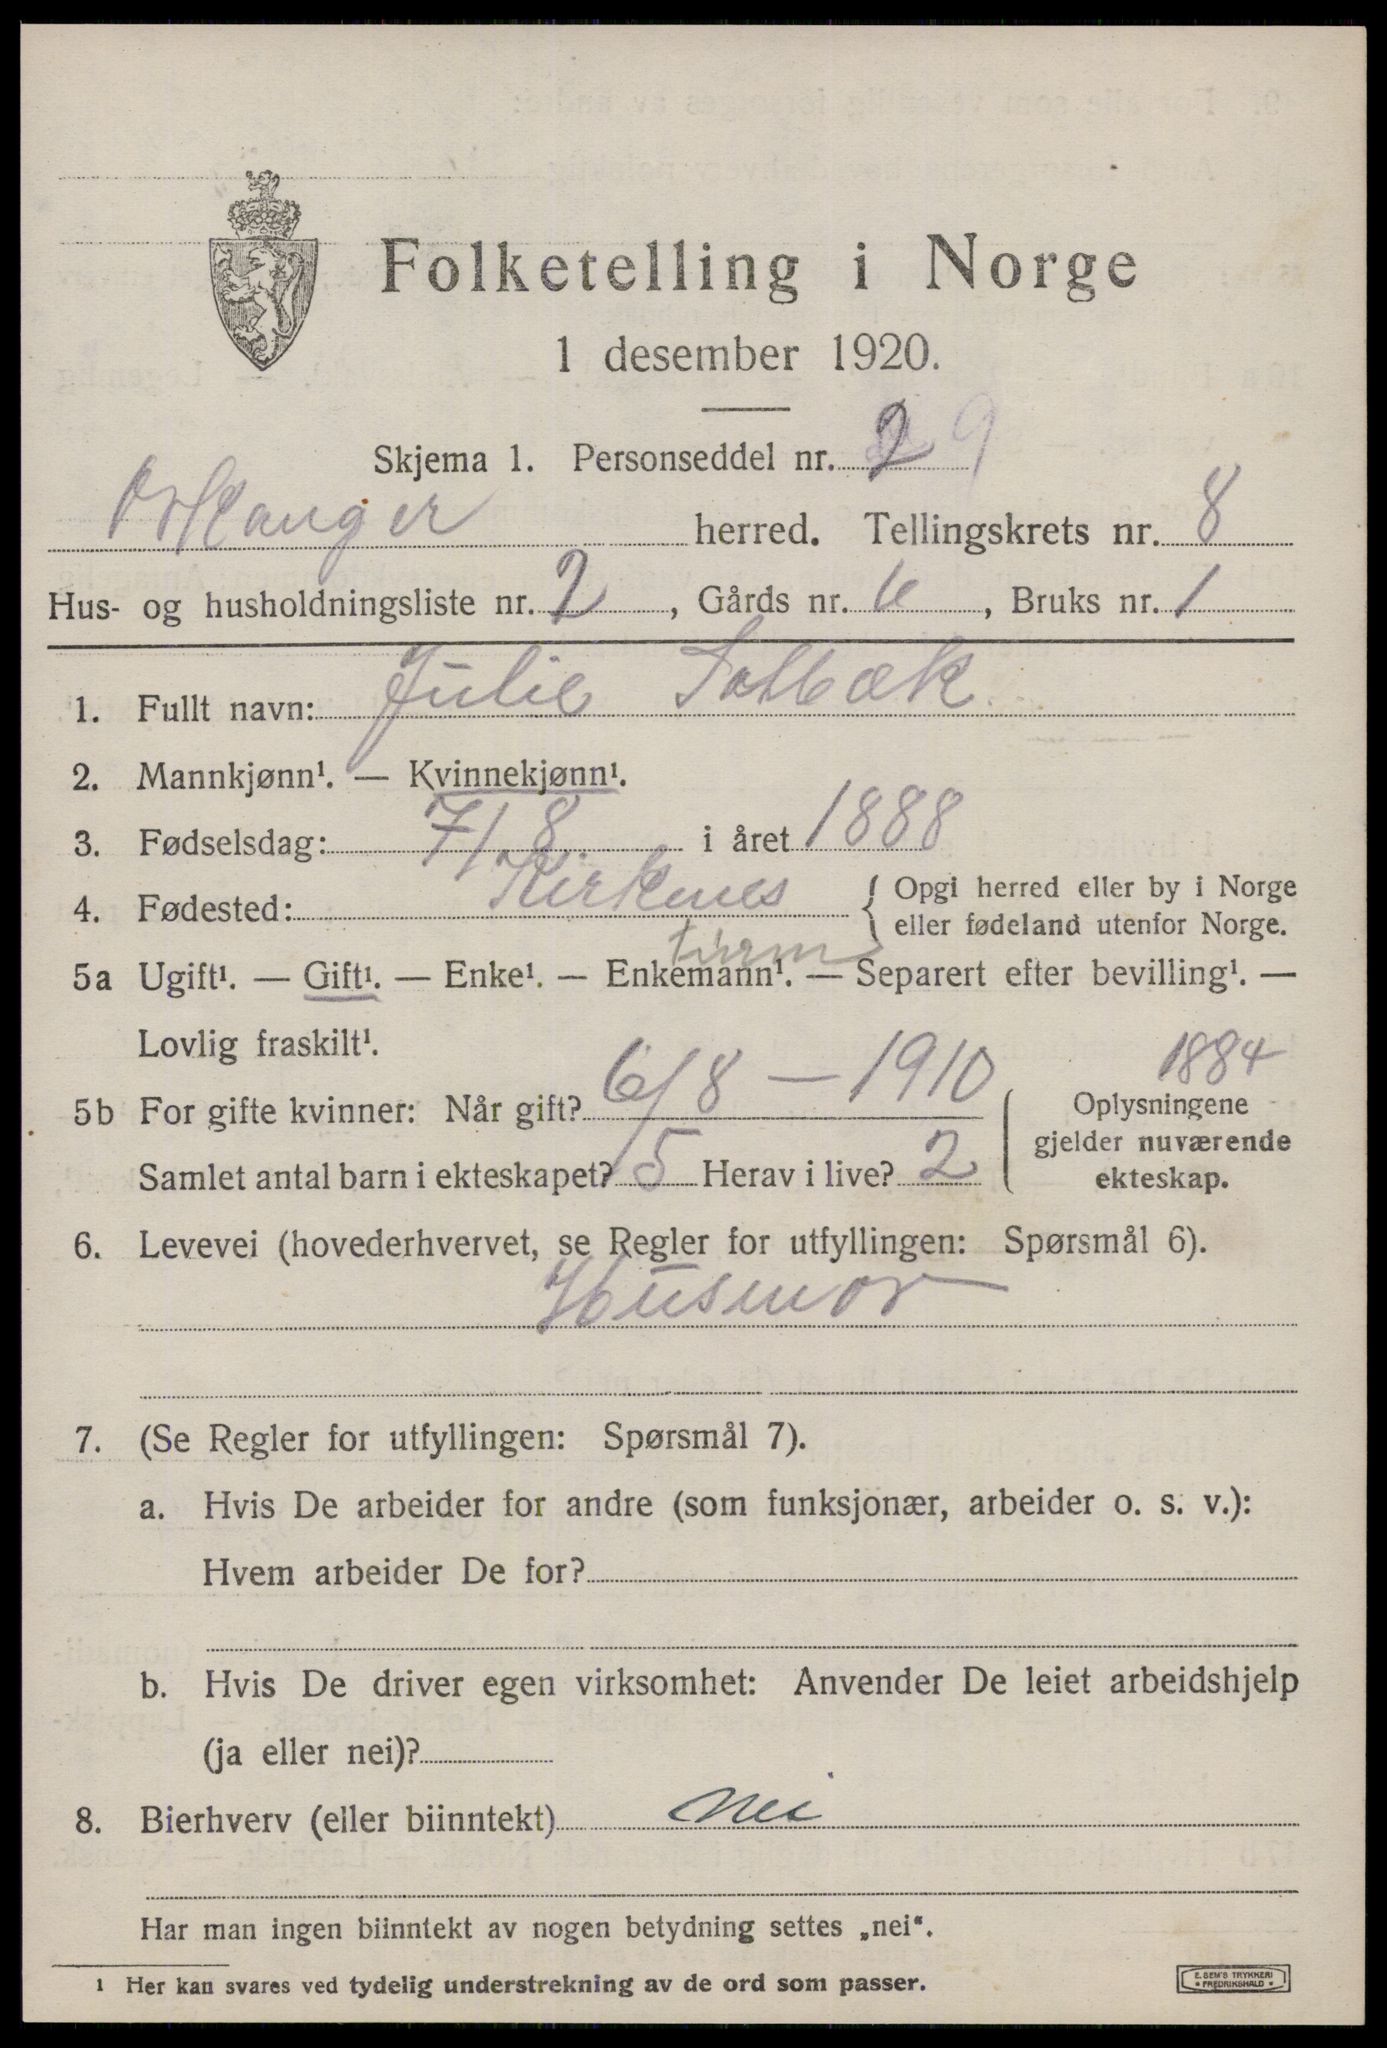 Folketelling i Norge
1 desember 1920.
Skjema 1. Personseddel nr. 2 9
Orkanger herred. Tellingskrets nr. 8
Hus- og husholdningsliste nr. 2, Gårds nr. 6, Bruks nr. 1
1. Fullt navn: Julie Solbæk.
2. Mannkjønn¹. — Kvinnekjønn¹.
3. Fødselsdag: 7/8. i året 1888
4. Fødested: Kirkenes { Opgi herred eller by i Norge
eller fødeland utenfor Norge.
5a Ugift¹. — Gift¹. — Enke¹. — Enkemann¹. — Separert efter bevilling¹. —
Lovlig fraskilt¹.
1884
5b For gifte kvinner: Når gift? 6/8 — 1910
Samlet antal barn i ekteskapet? 5 Herav i live? 2
Oplysningene
gjelder nuværende
ekteskap.
6. Levevei (hovederhvervet, se Regler for utfyllingen: Spørsmål 6).
Husmor
7. (Se Regler for utfyllingen: Spørsmål 7).
a. Hvis De arbeider for andre (som funksjonær, arbeider o. s. v.):
Hvem arbeider De for?
b. Hvis De driver egen virksomhet: Anvender De leiet arbeidshjelp
(ja eller nei)?
8. Bierhverv (eller biinntekt) nei
Har man ingen biinntekt av nogen betydning settes „nei“.
¹ Her kan svares ved tydelig understrekning av de ord som passer.
E. SEM'S TRYKKERI
* FREDRIKSHALD *